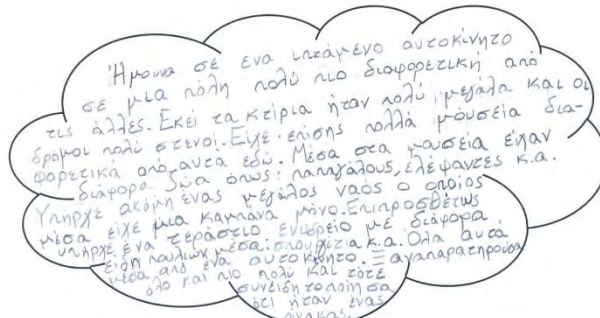 Ήμουνα σε ένα ιπτάμενο αυτοκίνητο
σε μια πόλη πολύ πιο διαφορετική από
τις άλλες. Εκεί τα κτίρια ήταν πολύ μεγάλα και οι
δρόμοι πολύ στενοί. Είχε επίσης πολλά μουσεία δια-
φορετικά από αυτά εδώ. Μέσα στα μουσεία είχαν
διάφορα ζώα όπως: παπαγάλους, ελέφαντες κ.α.
Υπήρχε ακόμη ένας μεγάλος ναός ο οποίος
μέσα είχε μια καμπάνα μόνο. Επιπροσθέτως
υπήρχε ένα τεράστιο ενυδρείο με διάφορα
είδη πουλιών μέσα: σπουργίτια κ.α. Όλα αυτά
μέσα από ένα αυτοκίνητο. Ξαναπαρατηρούσα
όλο και πιο πολύ και τότε
συνειδητοποίησα
ότι ήταν ένας
πίνακας.